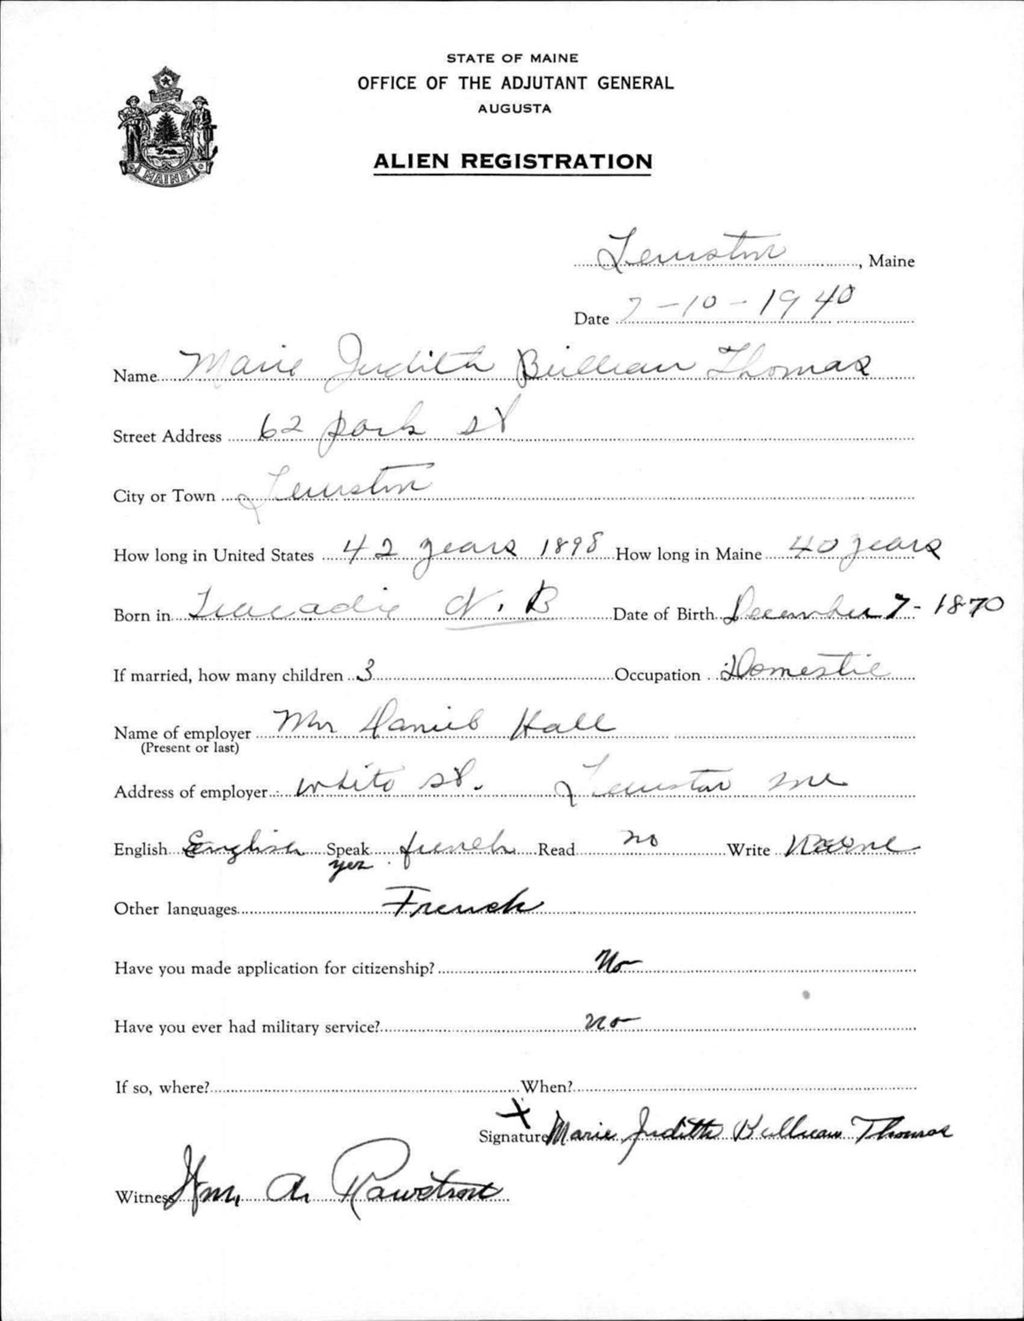 STATE OF MAINE
OFFICE OF THE ADJUTANT GENERAL
AUGUSTA
ALIEN REGISTRATION
MAINE
Lewiston, Maine
Date 7-10-1940
Name Marie Judith Thomas
Street Address 62 Park St
City or Town Lewiston
How long in United States 42 years 1898 How long in Maine 40 years
Born in Tracadie N.B Date of Birth December 7-1870
If married, how many children 3 Occupation Domestic
Name of employer Mr Daniel Hall
(Present or last)
Address of employer White St. Lewiston Me
English English Speak french Read no Write
yes
Other languages French
Have you made application for citizenship? No
Have you ever had military service? no
If so, where? When?
X
Signature Marie Judith Thomas
Witness Wm. A. Rawstron